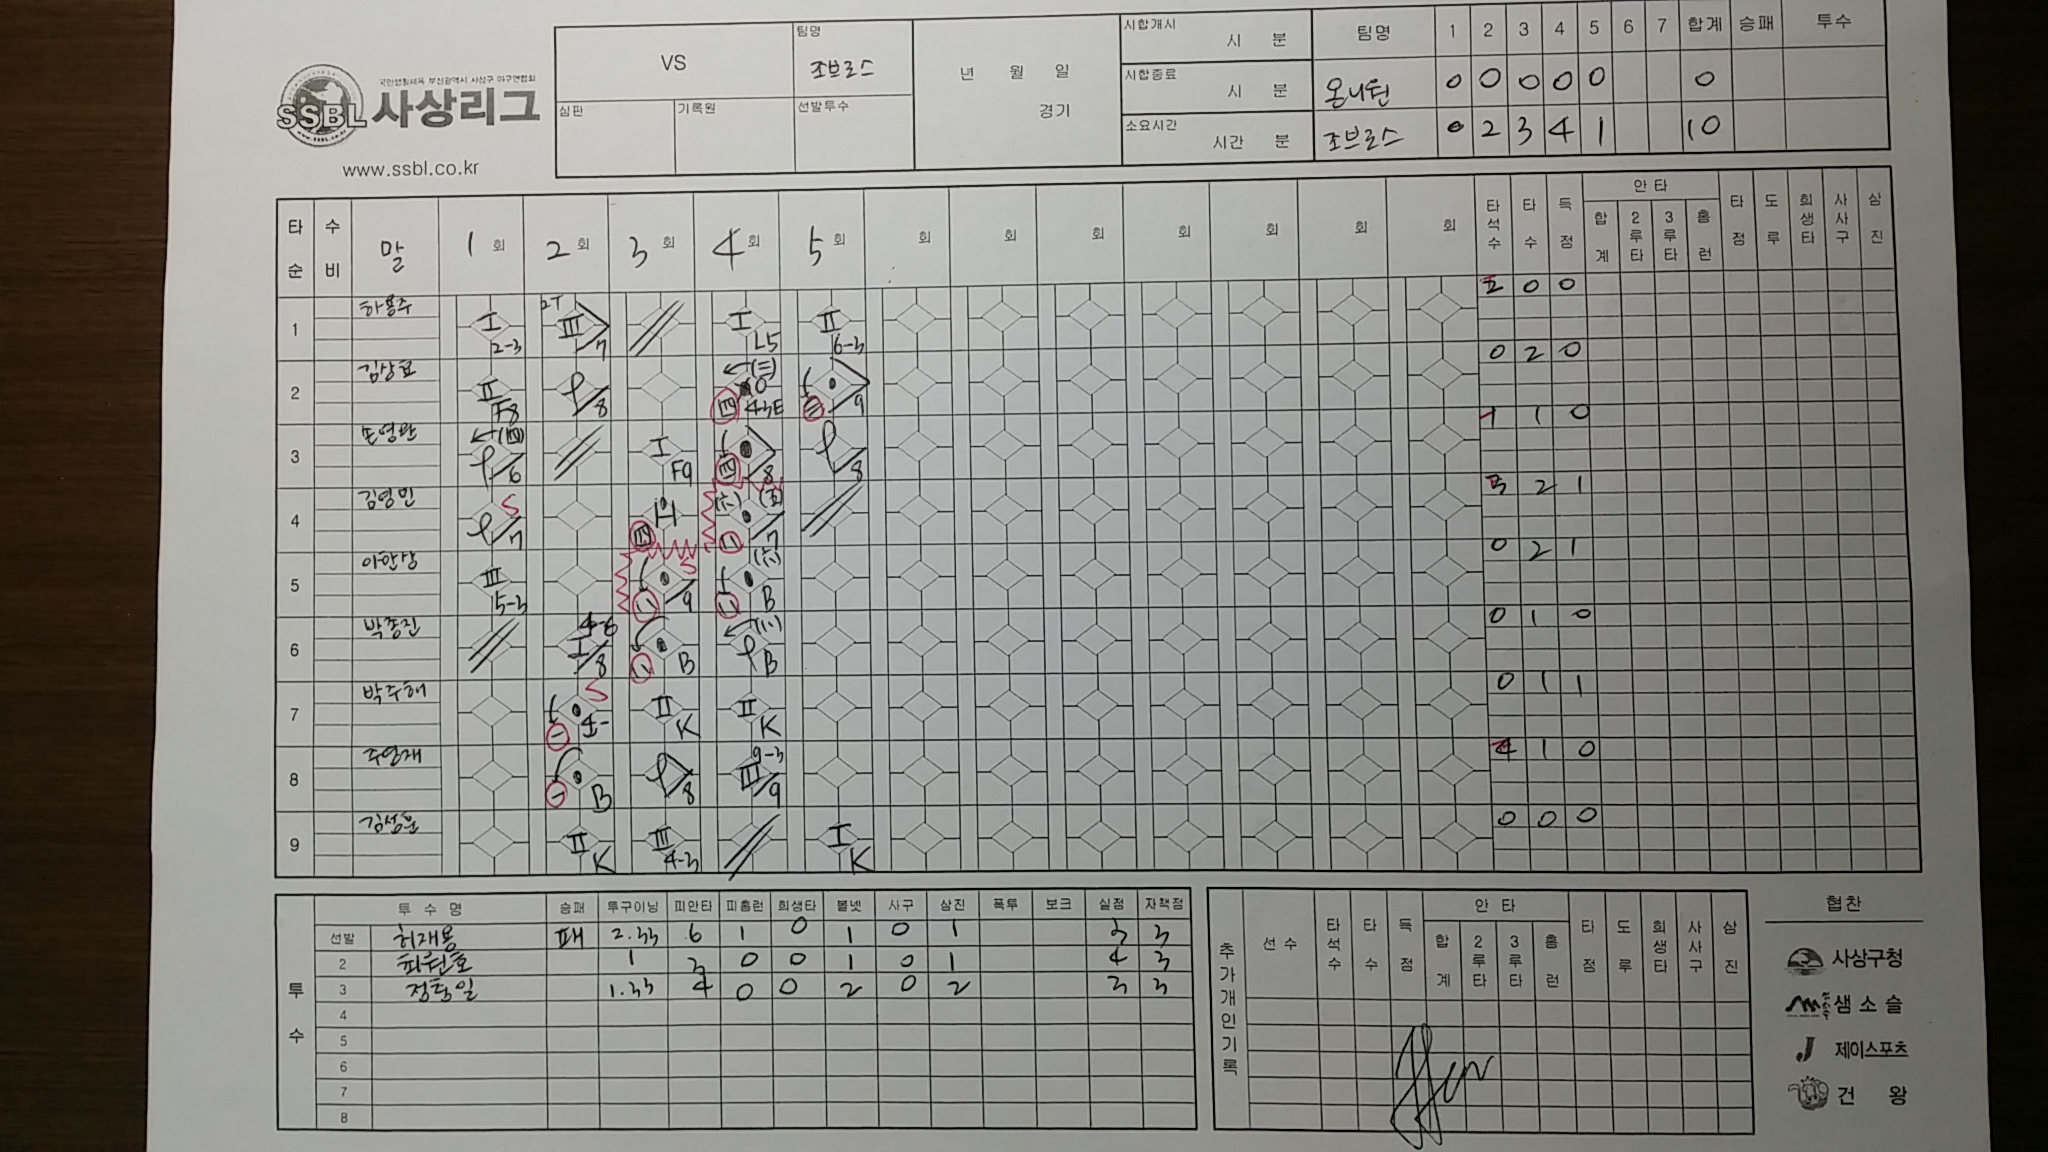 국민생활체육 부산광역시 사상구 야구연합회
SSBL 사상리그
www.ssbl.co.kr
VS
팀명
조브로스
심판
기록원
선발투수
년 월 일
경기
시합개시
시 분
시합종료
시 분
소요시간
시간 분
팀명 1 2 3 4 5 6 7 합계 승패 투수
온니원 0 0 0 0 0 0
조브로스 0 2 3 4 1 10
타순 수비 말 1회 2회 3회 4회 5회 회 회 회 회 회 회 회 타석수 타수 득점 안타 합계 2루타 3루타 홈런 타점 도루 희생타 사사구 삼진
1 하용주 I 2-3 2T III /7 I L5 II 6-3 2 0 0
2 김상효 II F8 /8 (三) 43E /9 0 2 0
3 손영완 (四) /6 I F9 /8 /8 1 1 0
4 김영민 S /7 H (六) (五) /7 3 2 1
5 이한상 III 5-3 S /9 (六) B 0 2 1
6 박종진 4-6 I /8 B B 0 1 0
7 박주해 S II K II K 0 1 1
8 주영재 B /8 9-3 III /9 4 1 0
9 김성운 II K III 4-3 I K 0 0 0
투수
투수명 승패 투구이닝 피안타 피홈런 희생타 볼넷 사구 삼진 폭투 보크 실점 자책점
선발 허재용 패 2.33 6 1 0 1 0 1 3 3
2 최원호 1 3 0 0 1 0 1 4 3
3 정황일 1.33 4 0 0 2 0 2 3 3
4
5
6
7
8
추가개인기록
선수 타석수 타수 득점 안타 합계 2루타 3루타 홈런 타점 도루 희생타 사사구 삼진
협찬
사상구청
샘소슬
제이스포츠
건왕